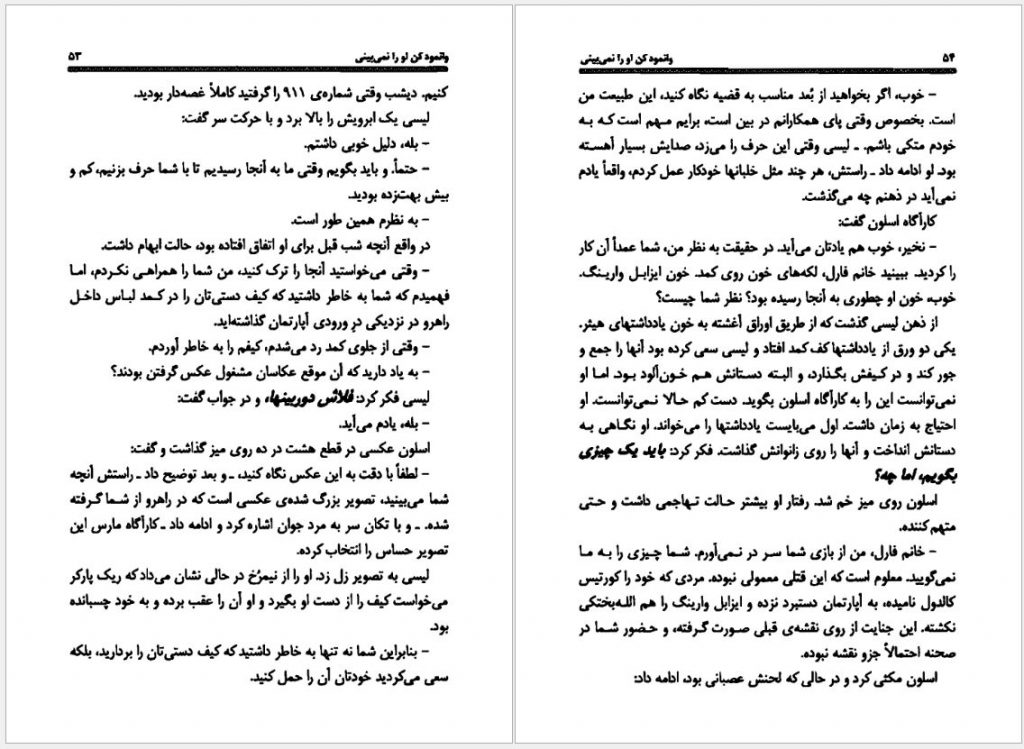 ۵۳
وانمود کن او را نمی‌بینی
کنیم. دیشب وقتی شماره‌ی ۹۱۱ را گرفتید کاملاً غصه‌دار بودید.
لیسی یک ابرویش را بالا برد و با حرکت سر گفت:
- بله، دلیل خوبی داشتم.
- حتماً. و باید بگویم وقتی ما به آنجا رسیدیم تا با شما حرف بزنیم، کم و
بیش بهت‌زده بودید.
- به نظرم همین طور است.
در واقع آنچه شب قبل برای او اتفاق افتاده بود، حالت ابهام داشت.
- وقتی می‌خواستید آنجا را ترک کنید، من شما را همراهی نکردم، اما
فهمیدم که شما به خاطر داشتید که کیف دستی‌تان را در کمد لباس داخل
راهرو در نزدیکی درِ ورودی آپارتمان گذاشته‌اید.
- وقتی از جلوی کمد رد می‌شدم، کیفم را به خاطر آوردم.
- به یاد دارید که آن موقع عکاسان مشغول عکس گرفتن بودند؟
لیسی فکر کرد: فلاش دوربینها، و در جواب گفت:
- بله، یادم می‌آید.
اسلون عکسی در قطع هشت در ده روی میز گذاشت و گفت:
- لطفاً با دقت به این عکس نگاه کنید، ـ و بعد توضیح داد ـ راستش آنچه
شما می‌بینید، تصویر بزرگ شده‌ی عکسی است که در راهرو از شما گرفته
شده. ـ و با تکان سر به مرد جوان اشاره کرد و ادامه داد ـ کارآگاه مارس این
تصویر حساس را انتخاب کرده.
لیسی به تصویر زل زد. او را از نیمرُخ در حالی نشان می‌داد که ریک پارکر
می‌خواست کیف را از دست او بگیرد و او آن را عقب برده و به خود چسبانده
بود.
- بنابراین شما نه تنها به خاطر داشتید که کیف دستی‌تان را بردارید، بلکه
سعی می‌کردید خودتان آن را حمل کنید.
۵۴
وانمود کن او را نمی‌بینی
- خوب، اگر بخواهید از بُعد مناسب به قضیه نگاه کنید، این طبیعت من
است. بخصوص وقتی پای همکارانم در بین است، برایم مهم است که به
خودم متکی باشم. ـ لیسی وقتی این حرف را می‌زد، صدایش بسیار آهسته
بود. او ادامه داد ـ راستش، هر چند مثل خلبانها خودکار عمل کردم، واقعاً یادم
نمی‌آید در ذهنم چه می‌گذشت.
کارآگاه اسلون گفت:
- نخیر، خوب هم یادتان می‌آید. در حقیقت به نظر من، شما عمداً آن کار
را کردید. ببینید خانم فارل، لکه‌های خون روی کمد. خون ایزابل وارینگ.
خوب، خون او چطوری به آنجا رسیده بود؟ نظر شما چیست؟
از ذهن لیسی گذشت که از طریق اوراق آغشته به خون یادداشتهای هیثر.
یکی دو ورق از یادداشتها کف کمد افتاد و لیسی سعی کرده بود آنها را جمع و
جور کند و در کیفش بگذارد، و البته دستانش هم خون‌آلود بود. اما او
نمی‌توانست این را به کارآگاه اسلون بگوید. دست کم حالا نمی‌توانست. او
احتیاج به زمان داشت. اول می‌بایست یادداشتها را می‌خواند. او نگاهی به
دستانش انداخت و آنها را روی زانوانش گذاشت. فکر کرد: باید یک چیزی
بگویم، اما چه؟
اسلون روی میز خم شد. رفتار او بیشتر حالت تهاجمی داشت و حتی
متهم‌کننده.
- خانم فارل، من از بازی شما سر در نمی‌آورم. شما چیزی را به ما
نمی‌گویید. معلوم است که این قتلی معمولی نبوده. مردی که خود را کورتیس
کالدول نامیده، به آپارتمان دستبرد نزده و ایزابل وارینگ را هم الله‌بختکی
نکشته. این جنایت از روی نقشه‌ی قبلی صورت گرفته، و حضور شما در
صحنه احتمالاً جزو نقشه نبوده.
اسلون مکثی کرد و در حالی که لحنش عصبانی بود، ادامه داد: